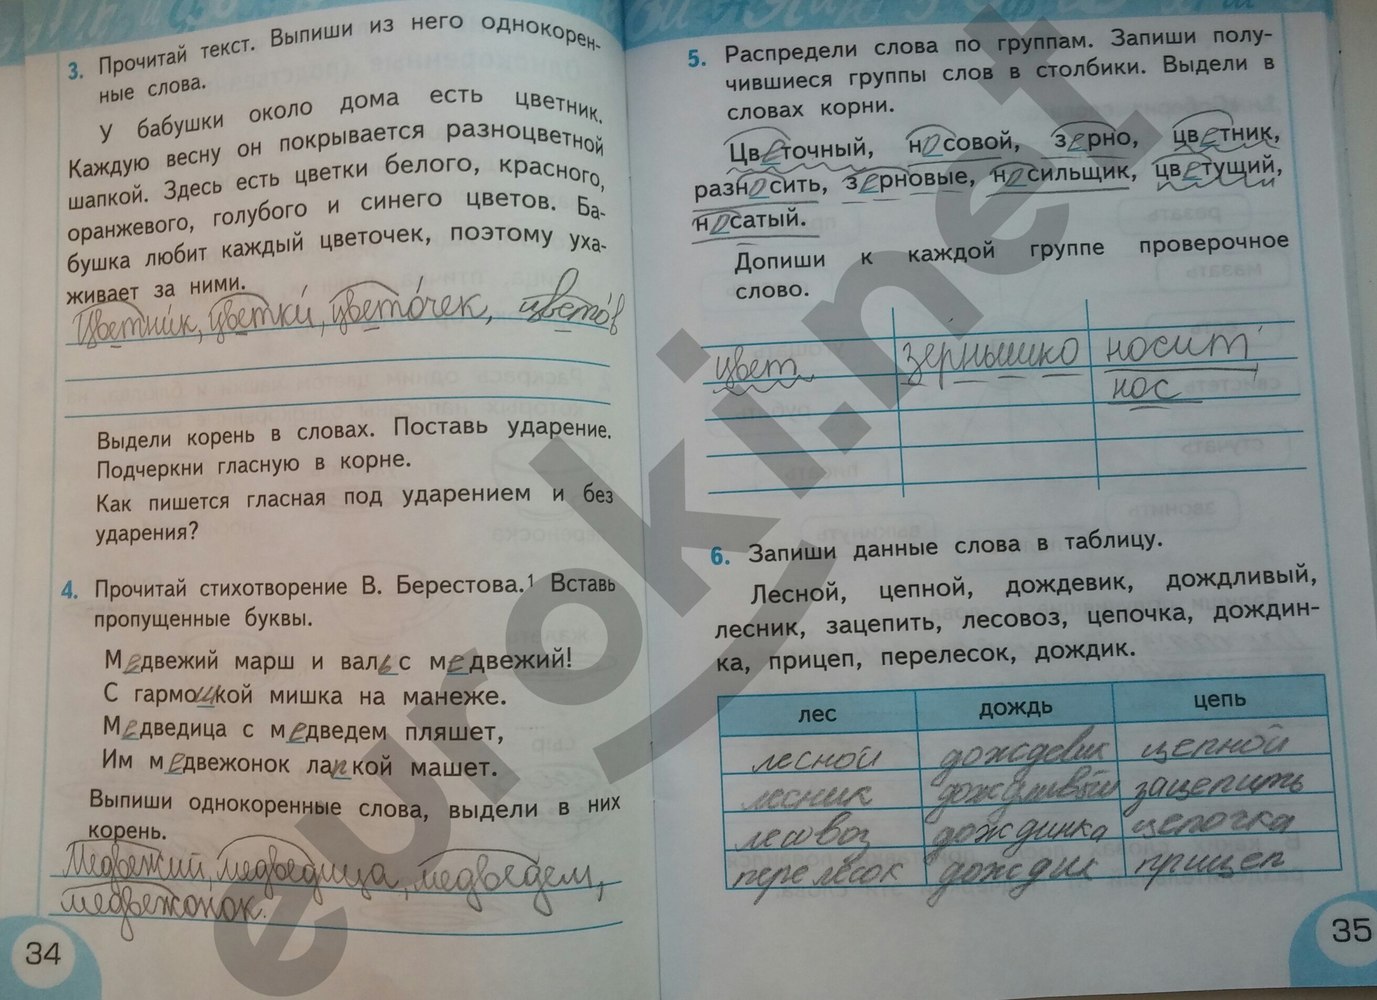 3. Прочитай текст. Выпиши из него однокорен-
ные слова.
У бабушки около дома есть цветник.
Каждую весну он покрывается разноцветной
шапкой. Здесь есть цветки белого, красного,
оранжевого, голубого и синего цветов. Ба-
бушка любит каждый цветочек, поэтому уха-
живает за ними.
Цветни́к, цветки́, цвето́чек, цвето́в
Выдели корень в словах. Поставь ударение.
Подчеркни гласную в корне.
Как пишется гласная под ударением и без
ударения?
4. Прочитай стихотворение В. Берестова.¹ Вставь
пропущенные буквы.
Медвежий марш и вальс медвежий!
С гармошкой мишка на манеже.
Медведица с медведем пляшет,
Им медвежонок лапкой машет.
Выпиши однокоренные слова, выдели в них
корень.
Медвежий, медведица, медведем,
медвежонок.
34
5. Распредели слова по группам. Запиши полу-
чившиеся группы слов в столбики. Выдели в
словах корни.
Цветочный, носовой, зерно, цветник,
разносить, зерновые, носильщик, цветущий,
носатый.
Допиши к каждой группе проверочное
слово.
цвет зёрнышко носит
нос
6. Запиши данные слова в таблицу.
Лесной, цепной, дождевик, дождливый,
лесник, зацепить, лесовоз, цепочка, дождин-
ка, прицеп, перелесок, дождик.
лес дождь цепь
лесной дождевик цепной
лесник дождливый зацепить
лесовоз дождинка цепочка
перелесок дождик прицеп
35
euroki.net